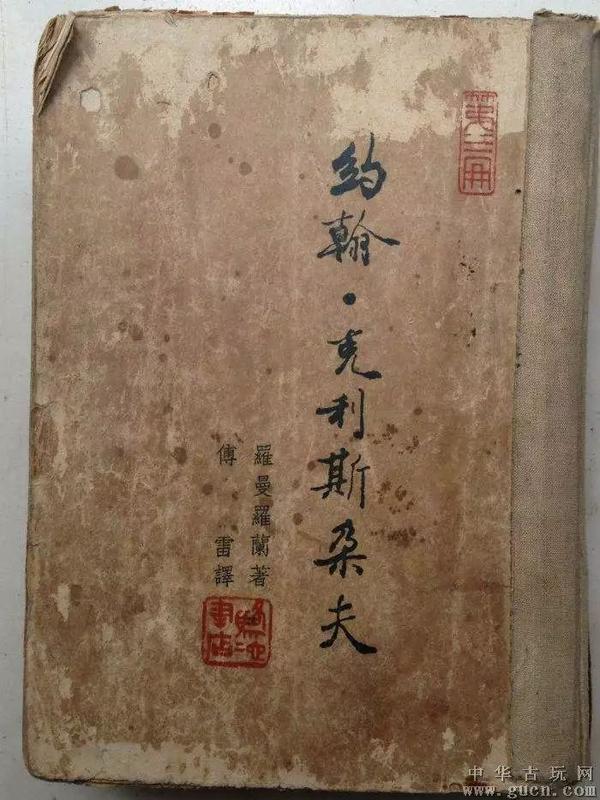 第三冊
約翰·克利斯朵夫
羅曼羅蘭著
傅雷譯
駱駝書店
中华古玩网
www.gucn.com